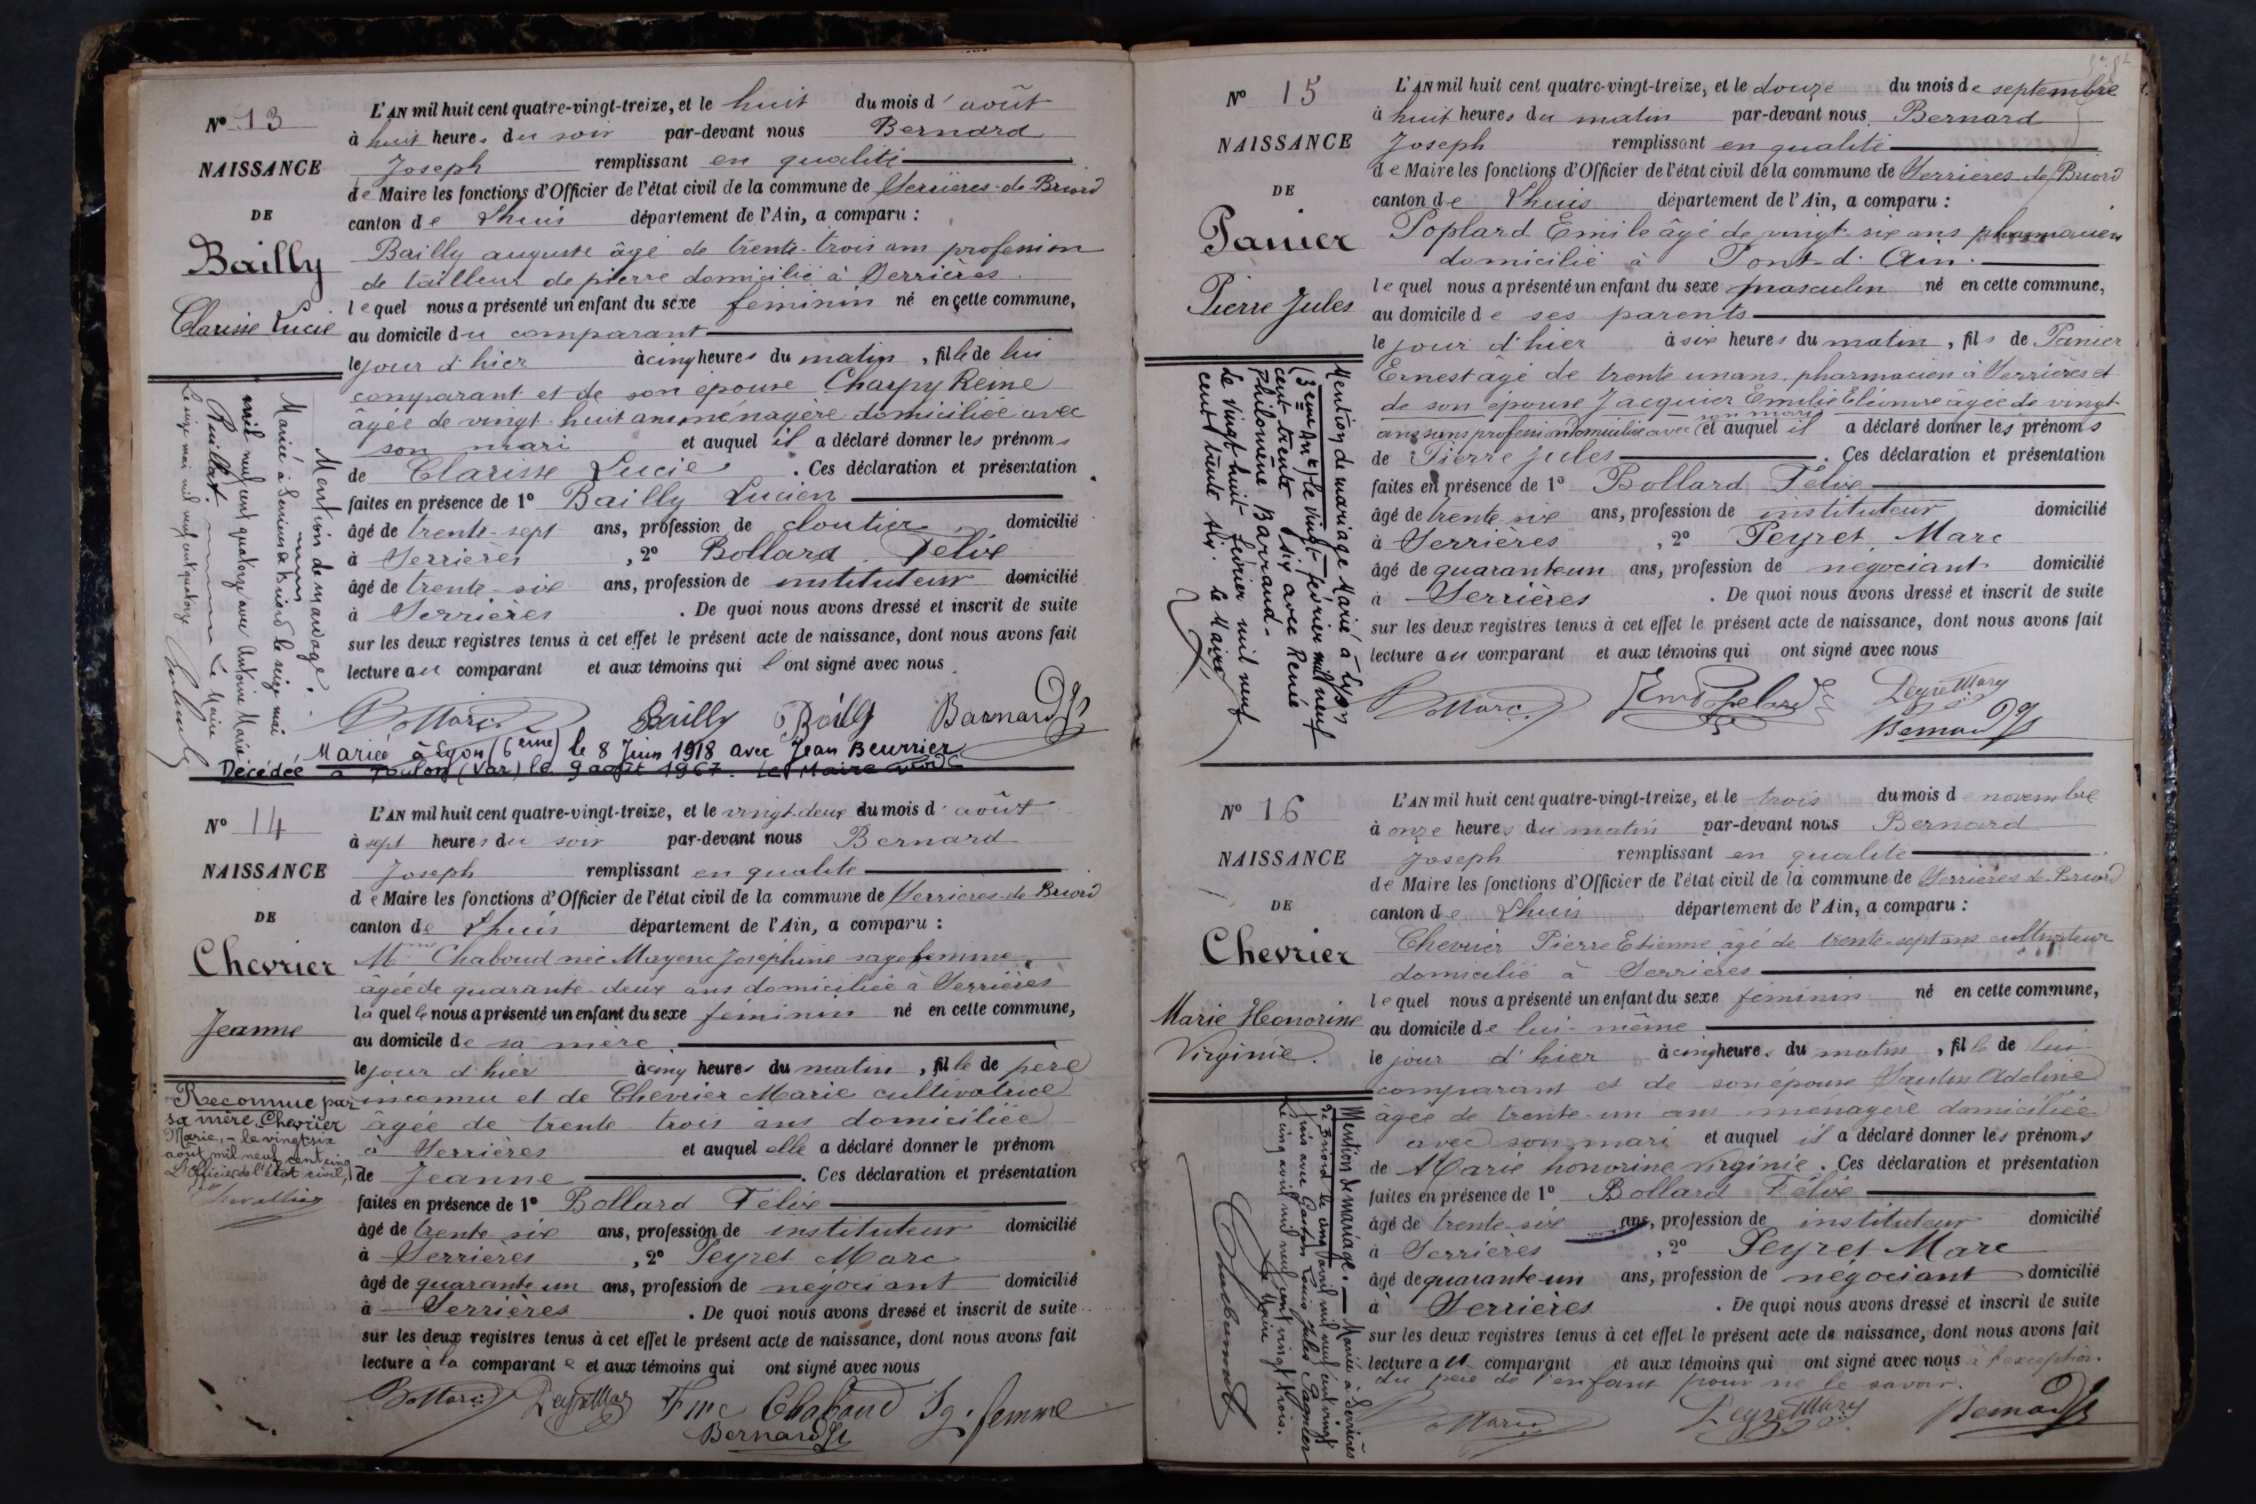 N° 13
NAISSANCE
DE
Bailly
Clarisse Lucie
L'AN mil huit cent quatre-vingt-treize, et le huit du mois d'août
à huit heures du soir par-devant nous Bernard
Joseph remplissant en qualité
de Maire les fonctions d'Officier de l'état civil de la commune de Serrières-de Briord
canton de Lhuis département de l'Ain, a comparu :
Bailly auguste âgé de trente-trois ans profession
de tailleur de pierre domicilié à Serrières
lequel nous a présenté un enfant du sexe féminin né en cette commune,
au domicile du comparant
le jour d'hier à cinq heures du matin, fille de lui
comparant et de son épouse Charpy Reine
âgée de vingt-huit ans ménagère domiciliée avec
son mari et auquel il a déclaré donner les prénoms
de Clarisse Lucie. Ces déclaration et présentation
faites en présence de 1° Bailly Lucien
âgé de trente-sept ans, profession de cloutier domicilié
à Serrières, 2° Bollard Félix
âgé de trente-six ans, profession de instituteur domicilié
à Serrières. De quoi nous avons dressé et inscrit de suite
sur les deux registres tenus à cet effet le présent acte de naissance, dont nous avons fait
lecture au comparant et aux témoins qui l'ont signé avec nous
Bollard Bailly Bailly Bernard
Mention de mariage.
Mariée à Serrières de Briord le seize mai
mil neuf cent quatorze avec Antoine Marie
Le Maire
Le seize mai mil neuf cent quatorze
Mariée à Lyon (6ème) le 8 Juin 1918 avec Jean Beurrier
Décédée à Toulon (Var) le 9 août 1967. Le Maire
N° 14
NAISSANCE
DE
Chevrier
Jeanne
Reconnue par
sa mère Chevrier
Marie, le vingt six
août mil neuf cent cinq
L'officier de l'état civil,
L'AN mil huit cent quatre-vingt-treize, et le vingt-deux du mois d'août
à sept heures du soir par-devant nous Bernard
Joseph remplissant en qualité
de Maire les fonctions d'Officier de l'état civil de la commune de Serrières-de Briord
canton de Lhuis département de l'Ain, a comparu :
Mme Chaboud née Mayenc Joséphine sage femme,
âgée de quarante-deux ans domiciliée à Serrières
laquelle nous a présenté un enfant du sexe féminin né en cette commune,
au domicile de sa mère
le jour d'hier à cinq heures du matin, fille de père
inconnu et de Chevrier Marie cultivatrice
âgée de trente trois ans domiciliée
à Serrières et auquel elle a déclaré donner le prénom
de Jeanne. Ces déclaration et présentation
faites en présence de 1° Bollard Félix
âgé de trente six ans, profession de instituteur domicilié
à Serrières, 2° Peyret Marc
âgé de quarante un ans, profession de négociant domicilié
à Serrières. De quoi nous avons dressé et inscrit de suite
sur les deux registres tenus à cet effet le présent acte de naissance, dont nous avons fait
lecture à la comparante et aux témoins qui ont signé avec nous
Bollard Peyret Marc Fme Chaboud Sg. femme
Bernard
N° 15
NAISSANCE
DE
Panier
Pierre Jules
L'AN mil huit cent quatre-vingt-treize, et le douze du mois de septembre
à huit heures du matin par-devant nous Bernard
Joseph remplissant en qualité
de Maire les fonctions d'Officier de l'état civil de la commune de Serrières de Briord
canton de Lhuis département de l'Ain, a comparu :
Poplard Emile âgé de vingt-six ans pharmacien
domicilié à Pont-d'Ain.
lequel nous a présenté un enfant du sexe masculin né en cette commune,
au domicile de ses parents
le jour d'hier à six heures du matin, fils de Panier
Ernest âgé de trente un ans pharmacien à Serrières et
de son épouse Jacquier Emilie Eléonore âgée de vingt
ans sans profession domiciliée avec son mari et auquel il a déclaré donner les prénoms
de Pierre Jules. Ces déclaration et présentation
faites en présence de 1° Bollard Félix
âgé de trente six ans, profession de instituteur domicilié
à Serrières, 2° Peyret Marc
âgé de quarante un ans, profession de négociant domicilié
à Serrières. De quoi nous avons dressé et inscrit de suite
sur les deux registres tenus à cet effet le présent acte de naissance, dont nous avons fait
lecture au comparant et aux témoins qui ont signé avec nous
Bollard Peyret Marc
Bernard
Mention de mariage Marié à Lyon
(3ème Arrt) le vingt-février mil neuf
cent trente six avec Renée
Philomène Barraud-
Le vingt-huit février mil neuf
cent trente six. Le Maire
N° 16
NAISSANCE
DE
Chevrier
Marie Honorine
Virginie.
L'AN mil huit cent quatre-vingt-treize, et le trois du mois de novembre
à onze heures du matin par-devant nous Bernard
Joseph remplissant en qualité
de Maire les fonctions d'Officier de l'état civil de la commune de Serrières de Briord
canton de Lhuis département de l'Ain, a comparu :
Chevrier Pierre Etienne âgé de trente-sept ans cultivateur
domicilié à Serrières
lequel nous a présenté un enfant du sexe féminin né en cette commune,
au domicile de lui-même
le jour d'hier à cinq heures du matin, fille de lui
comparant et de son épouse Adeline
âgée de trente-un ans ménagère domiciliée
avec son mari et auquel il a déclaré donner les prénoms
de Marie honorine virginie. Ces déclaration et présentation
faites en présence de 1° Bollard Félix
âgé de trente-six ans, profession de instituteur domicilié
à Serrières, 2° Peyret Marc
âgé de quarante-un ans, profession de négociant domicilié
à Serrières. De quoi nous avons dressé et inscrit de suite
sur les deux registres tenus à cet effet le présent acte de naissance, dont nous avons fait
lecture au comparant et aux témoins qui ont signé avec nous à l'exception
du père de l'enfant pour ne le savoir.
Bollard Peyret Marc Bernard
Mention de mariage. Mariée à Serrières
de Briord le cinq avril mil neuf cent vingt
trois avec Gaston Louis Jules Pagnier
Le cinq avril mil neuf cent vingt trois.
Le Maire